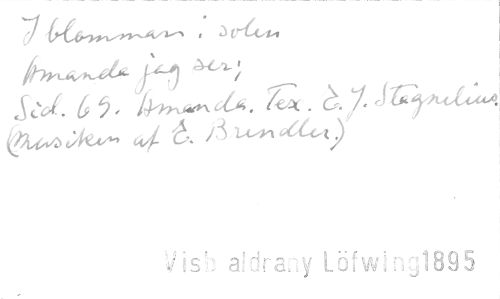 I blomman i solen
Amanda jag ser;
Sid. 69. Amanda. Tex. E. J. Stagnelius,
(Musiken af E. Brendler.)
Visb aldrany Löfwing1895